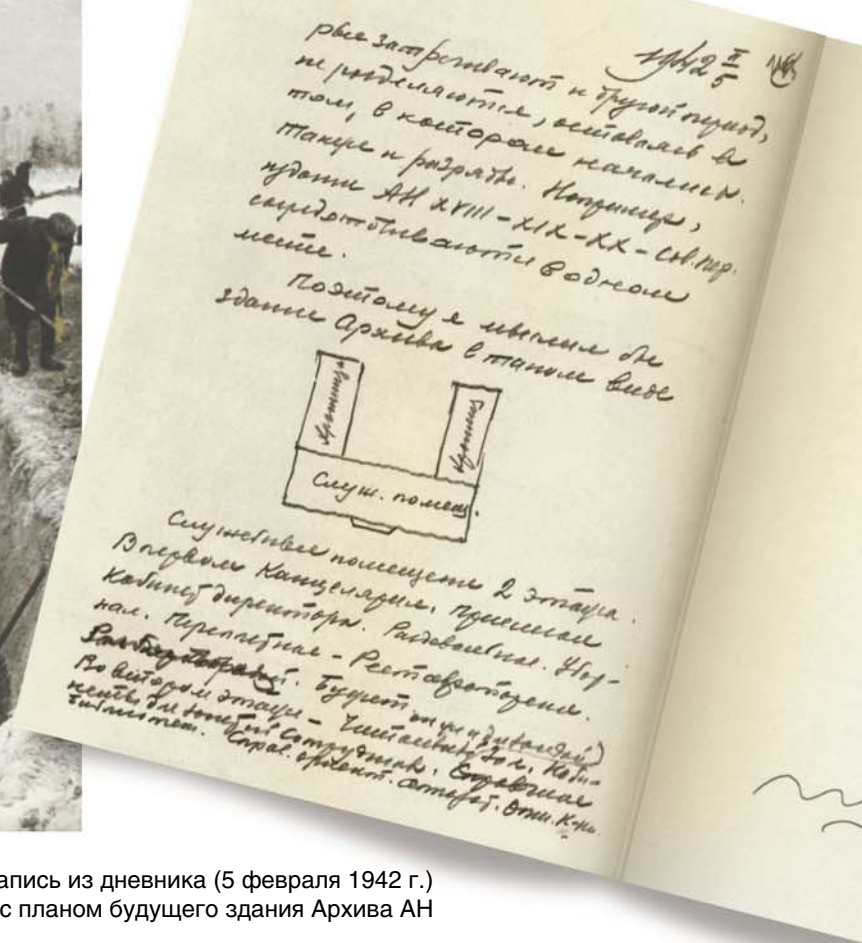 1942 II/5
рые затрагивают и другой период,
не разделяются, оставаясь в
том, в котором начались.
Такие и разряды. Например,
издания АН XVIII–XIX–XX – Сов. пер.
сосредотачиваются в одном
месте.
Поэтому я мыслил бы
здание Архива в таком виде
Хранилище
Хранилище
Служ. помещ.
Служебные помещения 2 этажа.
В первом Канцелярия. Приемная
Кабинет директора. Раздевальная. Убор-
ная. Переплетная – Реставрационная.
Буфет
Во втором этаже – Читальный зал, Каби-
неты для занятий сотрудник. Справочная
библиотека.
апись из дневника (5 февраля 1942 г.)
с планом будущего здания Архива АН